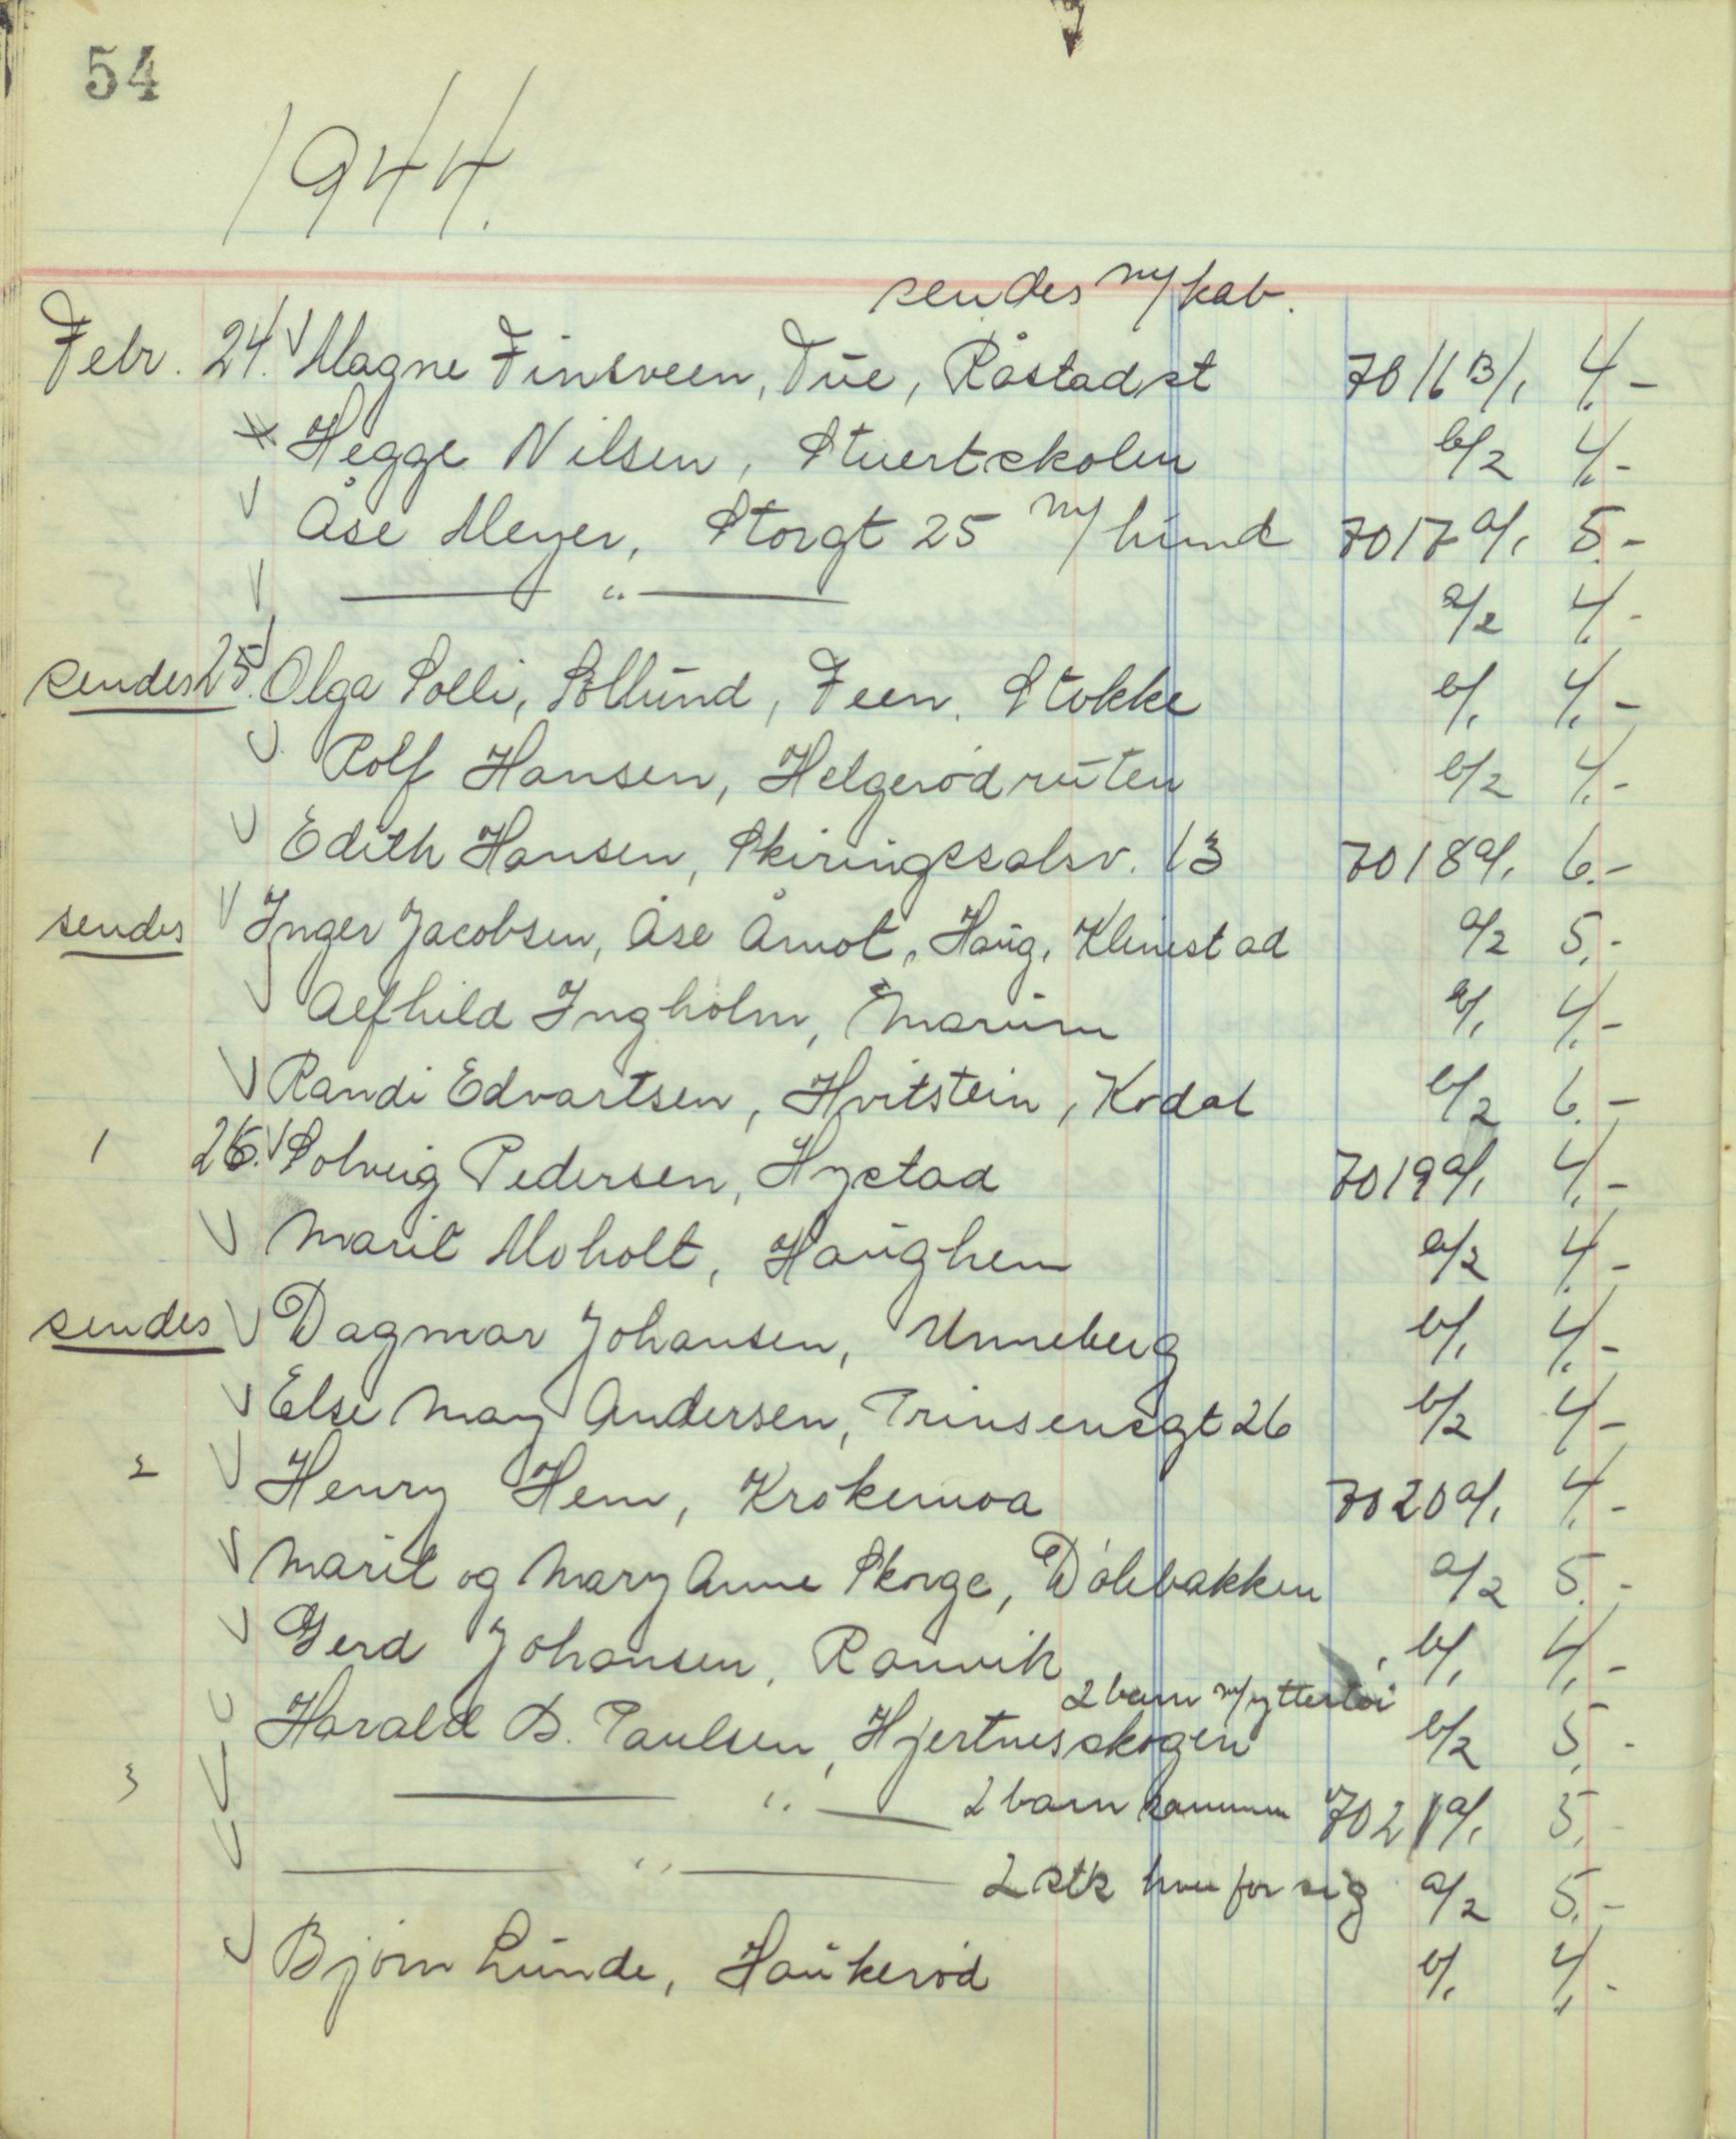 54
1944.
sendes m/kab.
Febr. 24. Magne Finsveen, Tûe, Råstad st 7016 B/1 4.-
Hegge Nilsen, Stuertskolen b/2 4.-
Åse Meyer, Storgt 25 m/hund 7017 a/1 5.-
— " — a/2 4.-
sendes 25. Olga Solli, Sollund, Feen. Stokke b/1 4.-
Rolf Hansen, Helgerødruten b/2 4.-
Edith Hansen, Skiringssalsv. 13 7018 a/1 6.-
sendes Inger Jacobsen, Åse Åmot, Haug, Klinestad a/2 5.-
Alfhild Ingholm, Marum b/1 4.-
Randi Edvartsen, Hvitstein, Kodal b/2 6.-
1 26. Solveig Pedersen, Hystad 7019 a/1 4.-
Marit Moholt, Haughem a/2 4.-
sendes Dagmar Johansen, Unneberg b/1 4.-
Else May Andersen, Prinsensgt 26 b/2 4.-
2 Henry Hem, Krokemoa 7020 a/1 4.-
Marit og Mary Anne Skorge, Dølebakken a/2 5.-
Gerd Johansen, Ranvik b/1 4.-
2 barn m/yttertøi
Harald B. Paulsen, Hjertnesskogen b/2 5.-
3 — " — 2 barn sammen 7021 a/1 5.-
— " — 2 stk hver for sig a/2 5.-
Bjørn Lunde, Haukerød b/1 4.-